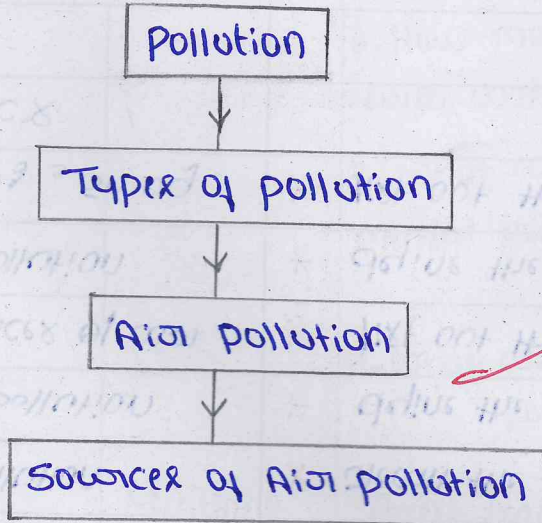 Pollution
Types of pollution
Air pollution
Sources of Air pollution